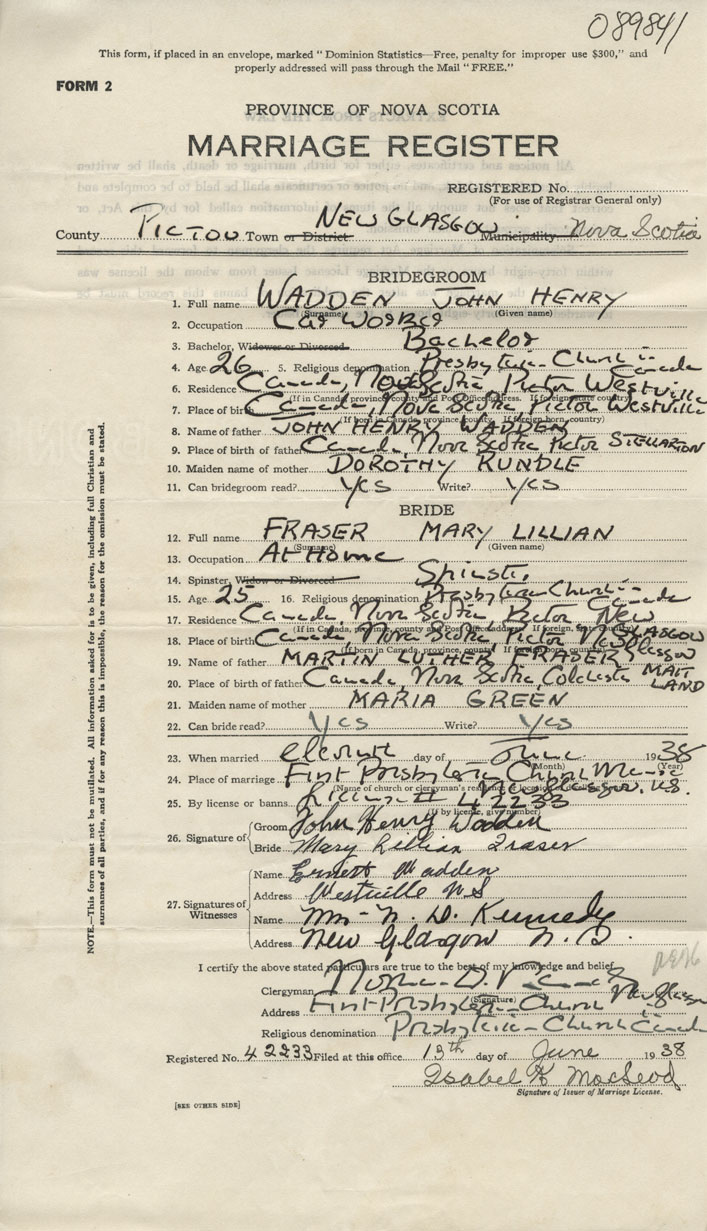 089841
This form, if placed in an envelope, marked "Dominion Statistics—Free, penalty for improper use $300," and
properly addressed will pass through the Mail "FREE."
FORM 2
PROVINCE OF NOVA SCOTIA
MARRIAGE REGISTER
REGISTERED No.
(For use of Registrar General only)
County PICTOU Town or District NEW GLASGOW Municipality Nova Scotia
BRIDEGROOM
1. Full name WADDEN JOHN HENRY
(Surname) (Given name)
2. Occupation Car Worker
3. Bachelor, Widower or Divorced Bachelor
4. Age 26 5. Religious denomination Presbyterian Church in Canada
6. Residence Canada, Nova Scotia, Pictou Westville
(If in Canada, province, county and Post Office address. If foreign, state country)
7. Place of birth Canada, Nova Scotia, Pictou Westville
(If born in Canada, province, county. If foreign born, country)
8. Name of father JOHN HENRY WADDEN
9. Place of birth of father Canada, Nova Scotia Pictou STELLARTON
10. Maiden name of mother DOROTHY RUNDLE
11. Can bridegroom read? Yes Write? Yes
BRIDE
12. Full name FRASER MARY LILLIAN
(Surname) (Given name)
13. Occupation At Home
14. Spinster, Widow or Divorced Spinster
15. Age 25 16. Religious denomination Presbyterian Church in Canada
17. Residence Canada, Nova Scotia, Pictou New GLASGOW
18. Place of birth Canada, Nova Scotia, Pictou N. Glasgow
19. Name of father MARTIN LUTHER FRASER
20. Place of birth of father Canada, Nova Scotia, Colchester MAITLAND
21. Maiden name of mother MARIA GREEN
22. Can bride read? Yes Write? Yes
23. When married eleventh day of June 1938
(Month) (Year)
24. Place of marriage First Presbyterian Church Manse
Glasgow. N.S.
25. By license or banns License # 42233
(If by license, give number)
26. Signature of Groom John Henry Wadden
Bride Mary Lillian Fraser
27. Signatures of Witnesses
Name Ernest Wadden
Address Westville N S
Name Mrs. N. D. Kennedy
Address New Glasgow N. S.
I certify the above stated particulars are true to the best of my knowledge and belief.
Clergyman Norman D. Kennedy
(Signature)
Address First Presbyterian Church New Glasgow
Religious denomination Presbyterian Church in Canada
Registered No. 42233 Filed at this office 13th day of June 1938
Isabel K MacLeod
Signature of Issuer of Marriage License.
[SEE OTHER SIDE]
NOTE.—This form must not be mutilated. All information asked for is to be given, including full Christian and
surnames of all parties, and if for any reason this is impossible, the reason for the omission must be stated.